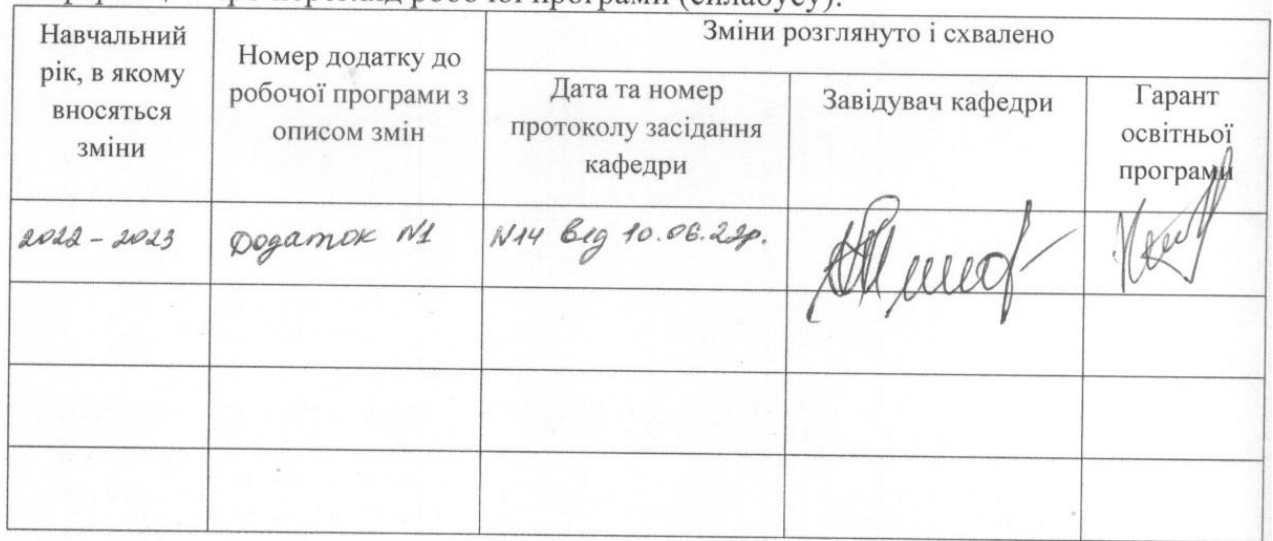 перегляд робочої програми (силабусу):
Навчальний
рік, в якому
вносяться
зміни
Номер додатку до
робочої програми з
описом змін
Зміни розглянуто і схвалено
Дата та номер
протоколу засідання
кафедри
Завідувач кафедри
Гарант
освітньої
програми
2022 - 2023
Додаток №1
№14 від 10.06.22р.